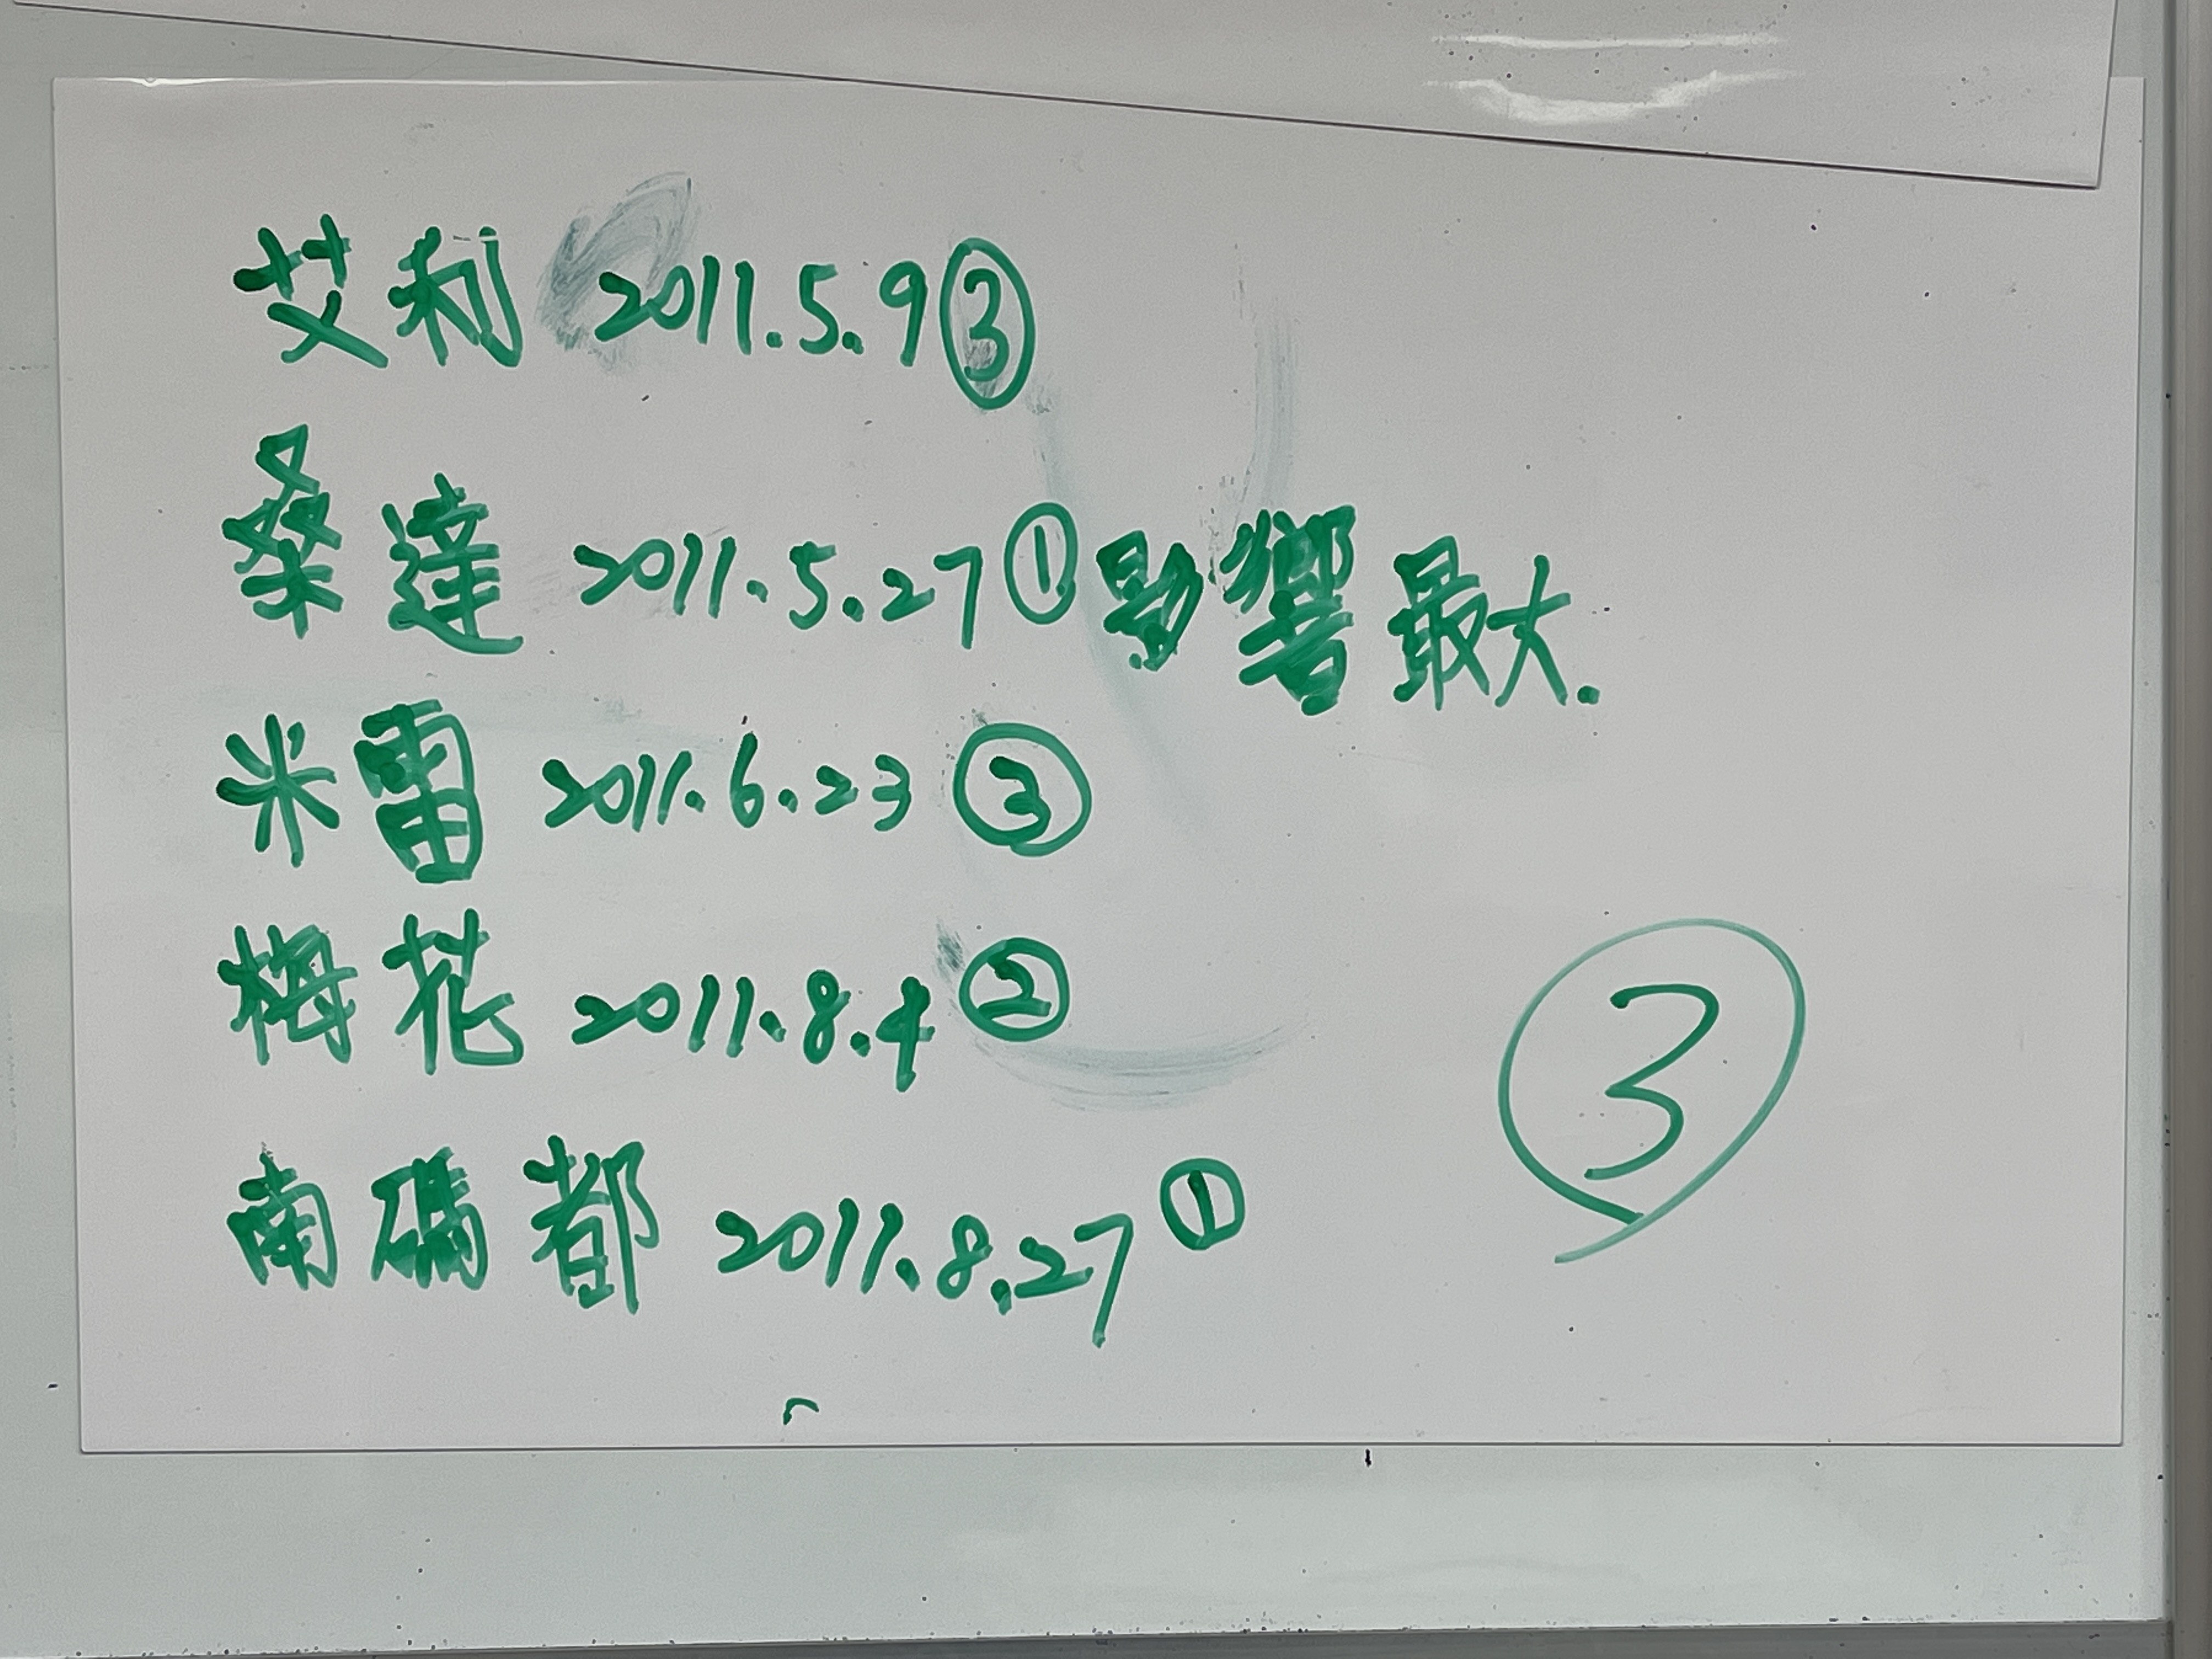 艾利 2011.5.9③
桑達 2011.5.27①影響最大.
米雷 2011.6.23③
梅花 2011.8.4②
南瑪都 2011.8.27①
③